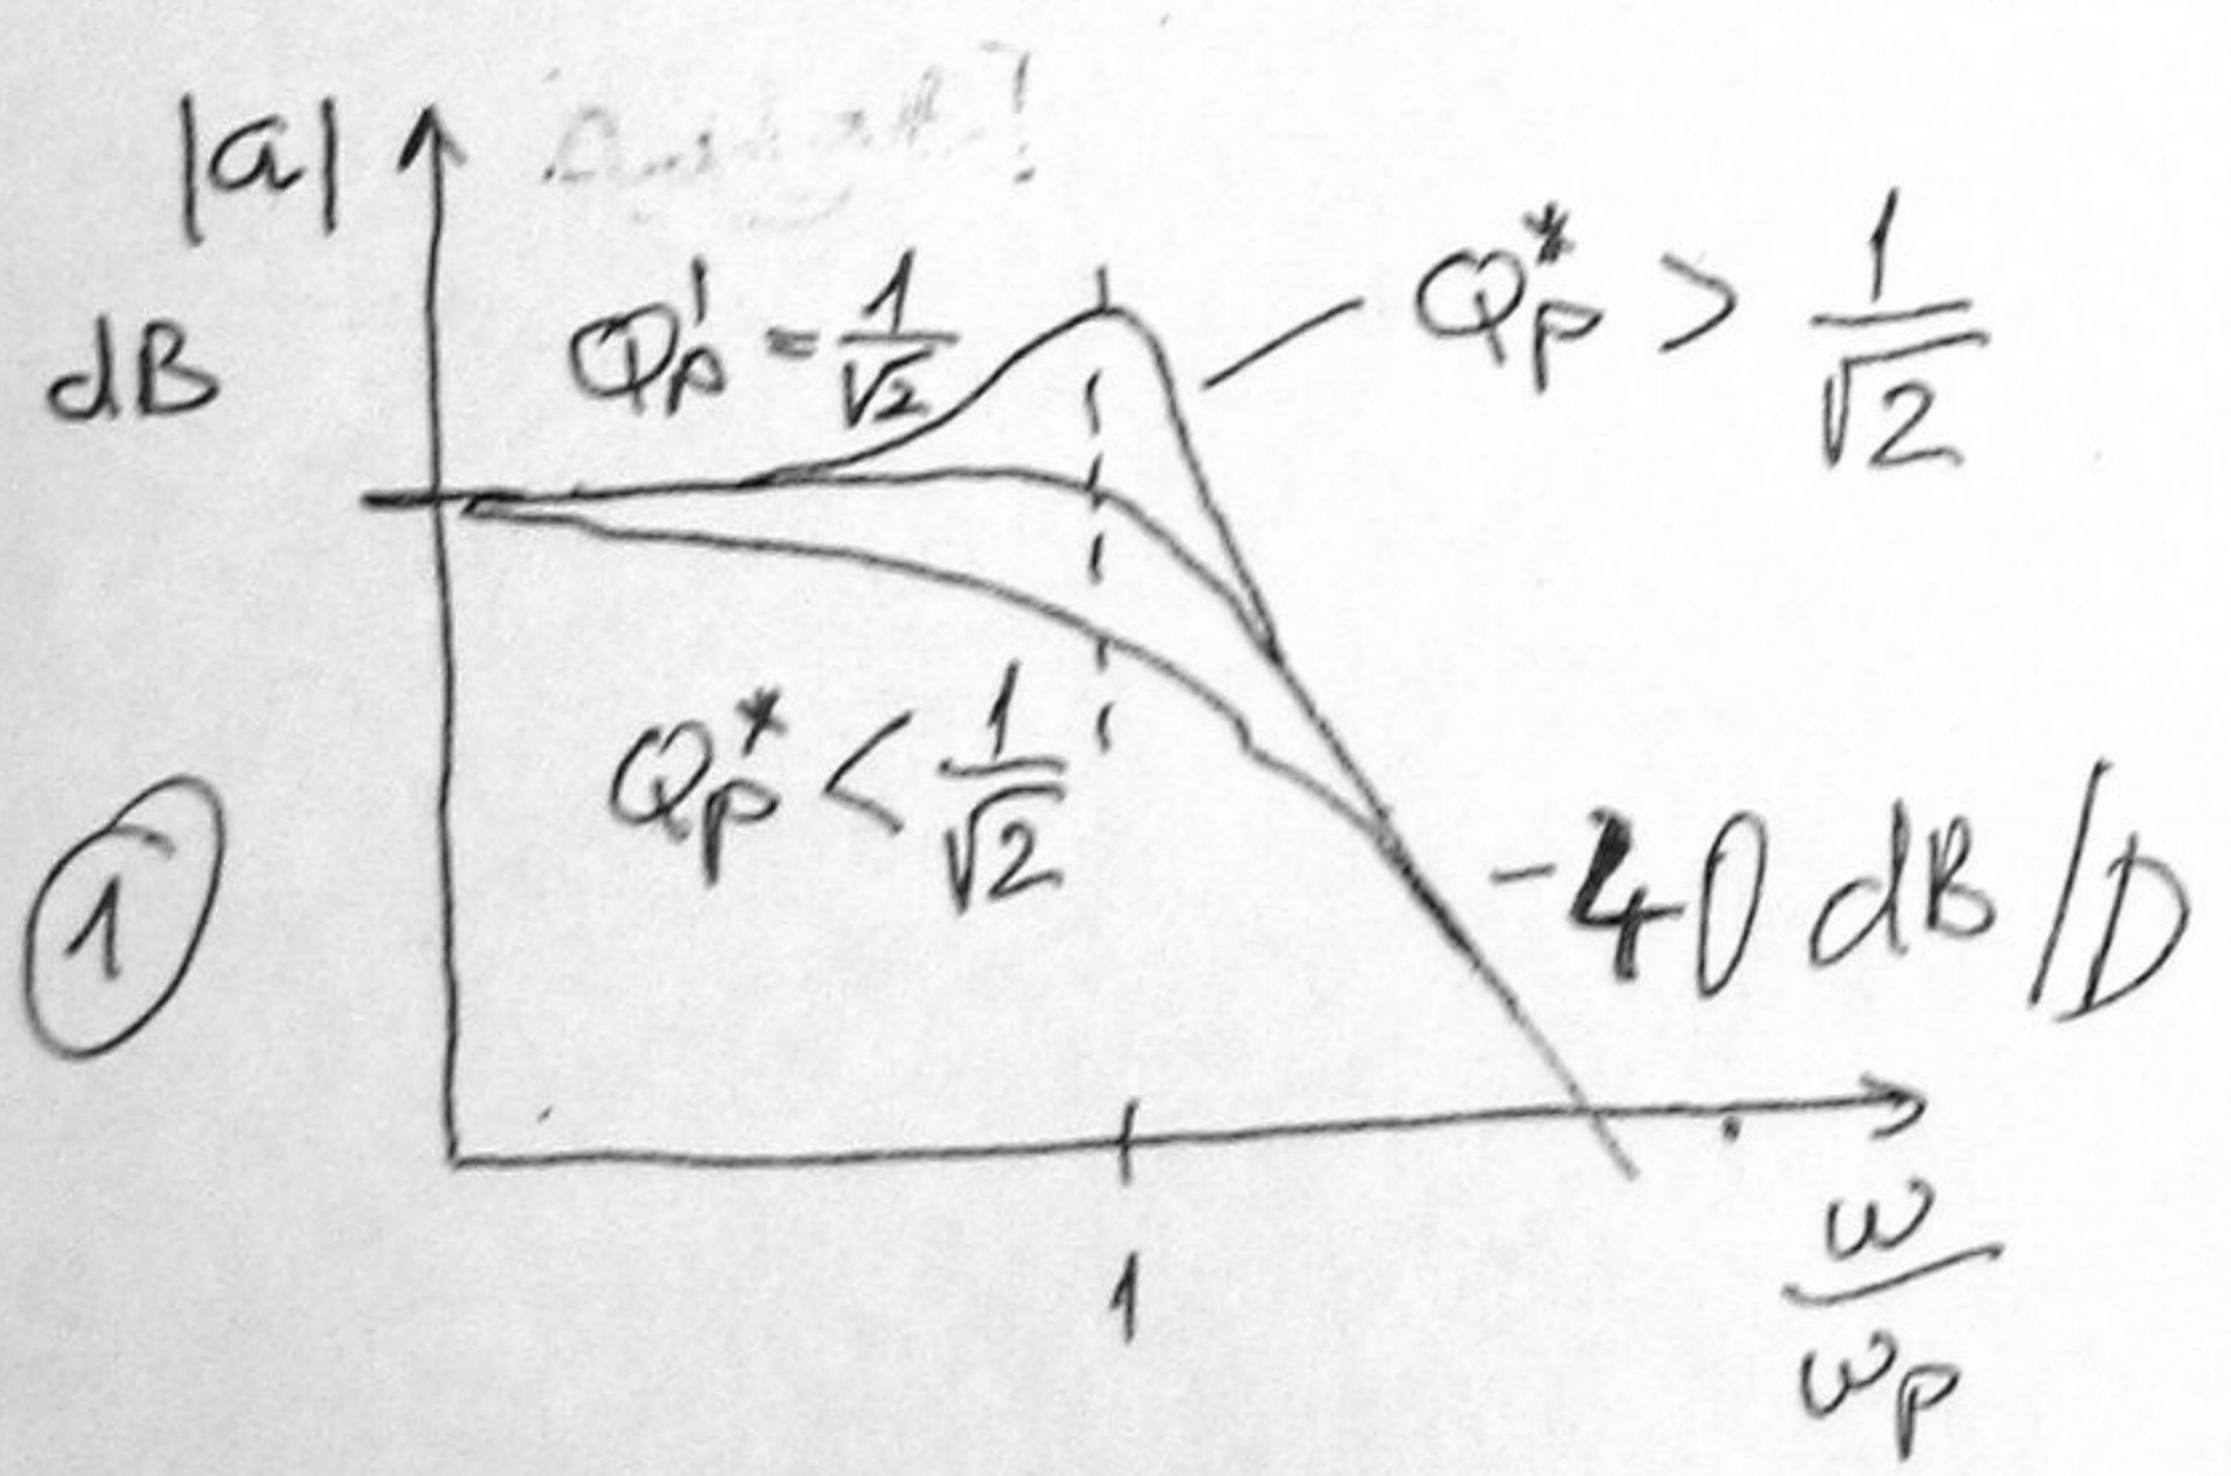 |a|
dB
Qp' = 1/√2
Qp* > 1/√2
Qp* < 1/√2
-40 dB/D
①
1
ω/ωp